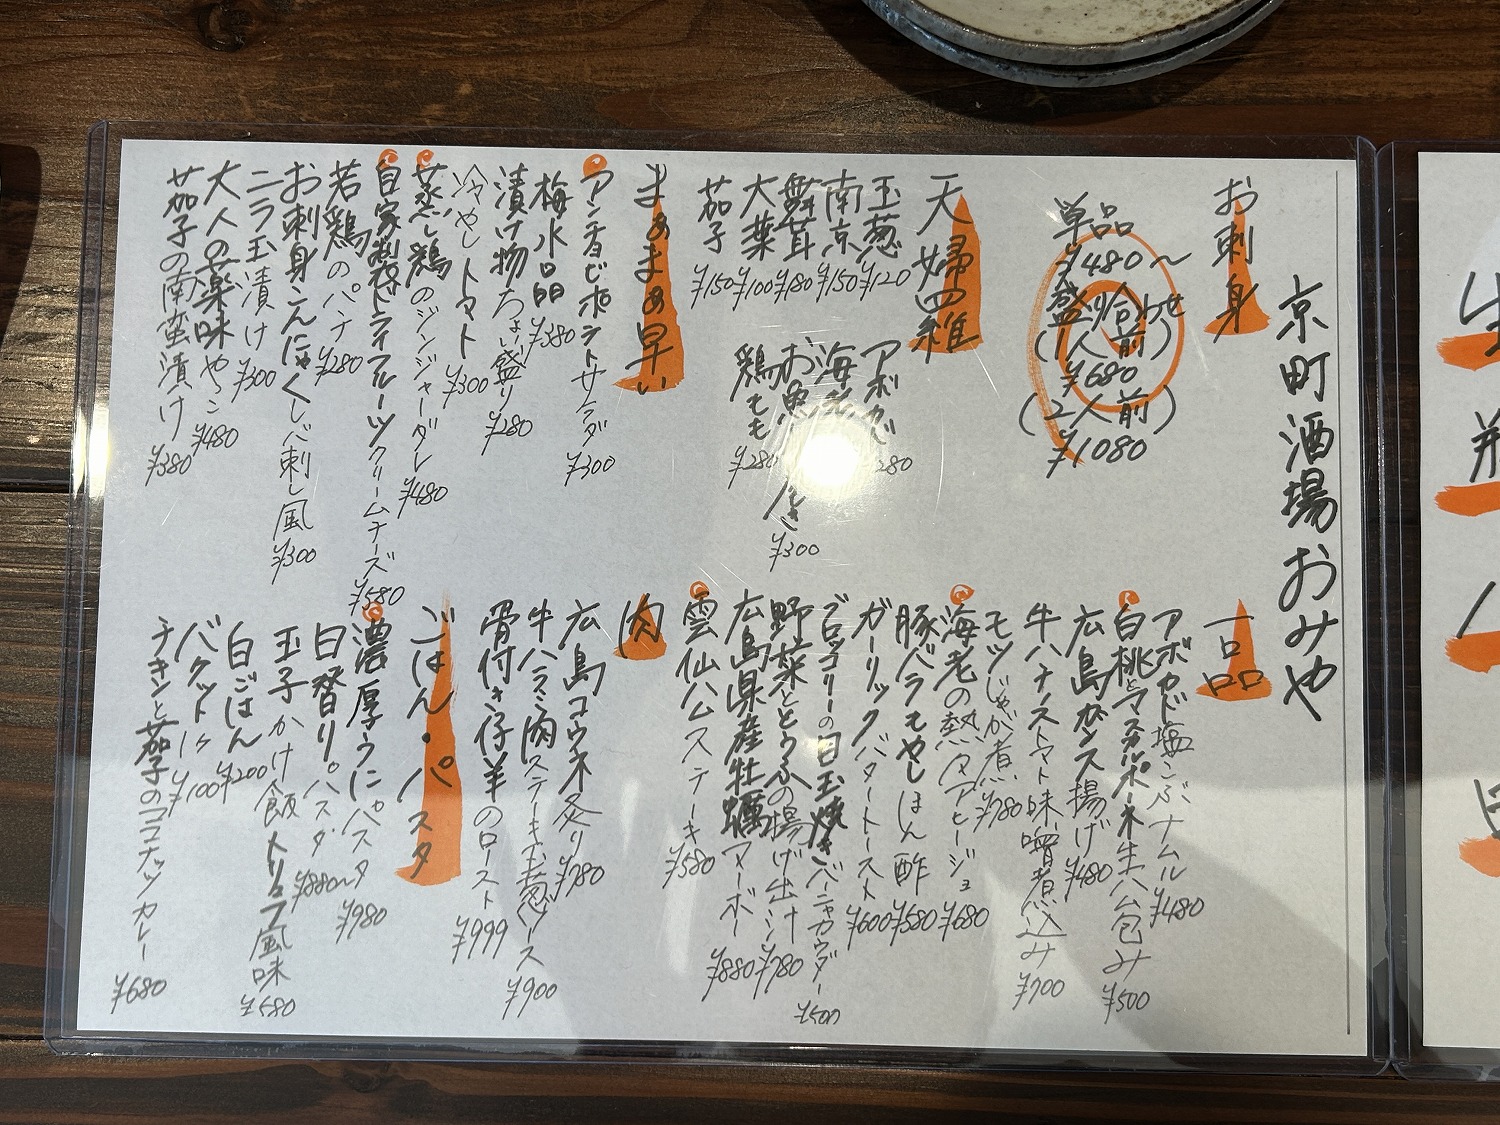 京町酒場おみや
お刺身
単品
¥480〜
盛り合わせ
(1人前)
¥680
(2人前)
¥1080
天婦羅
玉葱 ¥120
南京 ¥150
舞茸 ¥180
大葉 ¥100
茄子 ¥150
アボカド ¥280
海老
お魚
¥300
鶏もも ¥280
まぁまぁ早い
アンチョビポテトサラダ ¥300
梅水晶 ¥380
漬け物ちょい盛り ¥280
冷やしトマト ¥300
蒸し鶏のジンジャーダレ ¥480
自家製ドライフルーツクリームチーズ ¥580
若鶏のパテ ¥280
お刺身こんにゃくレバ刺し風 ¥300
ニラ玉漬け ¥300
大人の薬味やっこ ¥480
茄子の南蛮漬け ¥380
一品
アボカド塩こぶナムル ¥480
白桃とマスカルポーネ生ハム包み ¥500
広島ガンス揚げ ¥480
牛ハチノストマト味噌煮込み ¥700
モツじゃが煮 ¥780
海老の熱々アヒージョ ¥680
豚バラもやしぽん酢 ¥580
ガーリックバタートースト ¥600
ブロッコリーの目玉焼きバーニャカウダー ¥500
野菜ととうふの揚げ出汁 ¥780
広島県産牡蠣マーボ ¥880
雲仙ハムステーキ ¥580
肉
広島コウネ炙り ¥780
牛ハラミ肉ステーキ玉葱ソース ¥900
骨付き仔羊のロースト ¥999
ごはん・パスタ
濃厚うにパスタ ¥980
日替りパスタ ¥880〜
玉子かけ飯トリュフ風味 ¥580
白ごはん ¥200
バケット ¥100
チキンと茄子のココナッツカレー ¥680